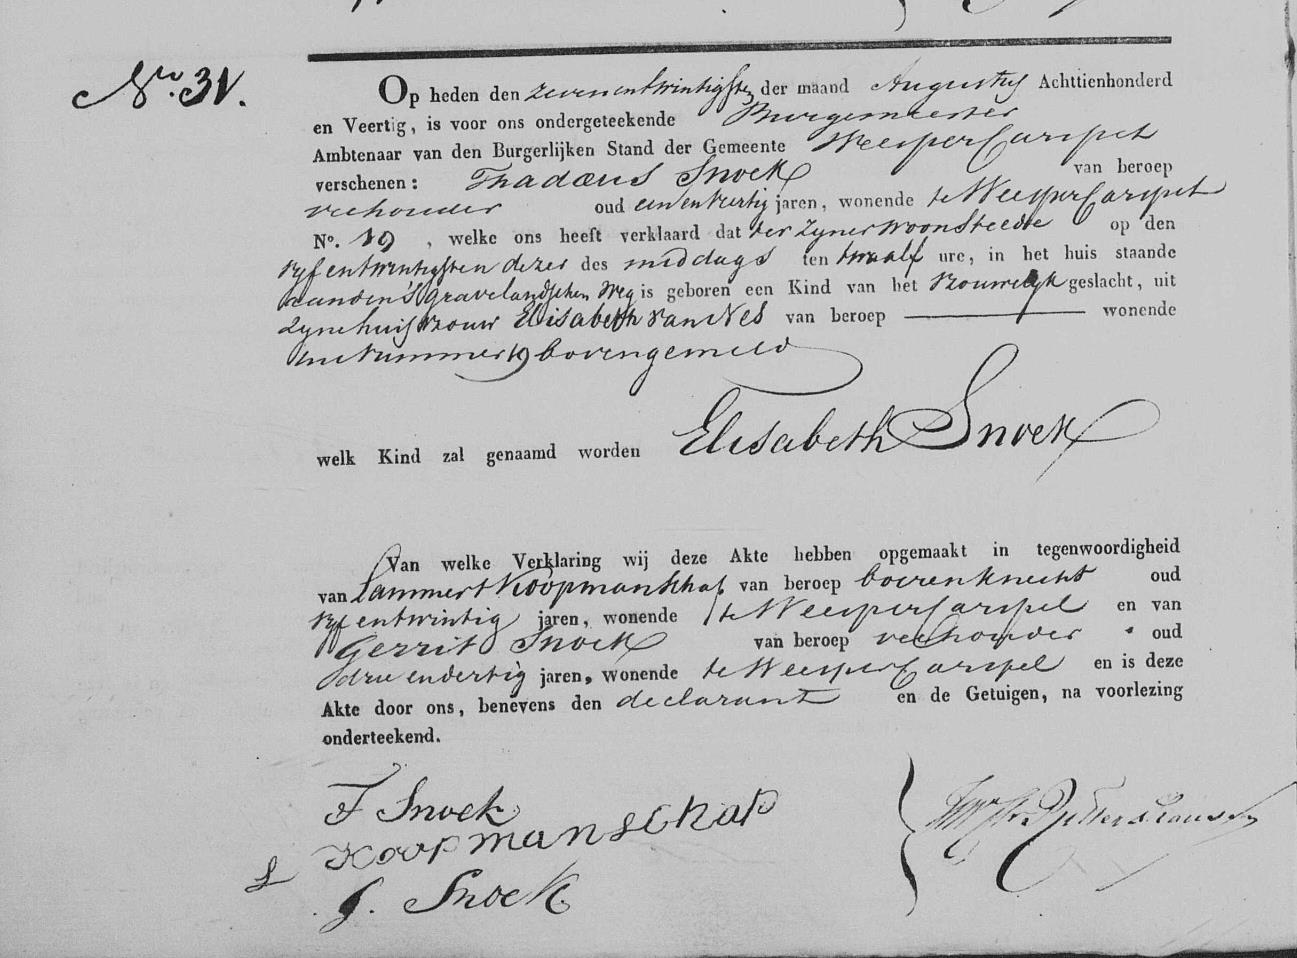 No. 31.
Op heden den zevenentwintigsten der maand Augustus Achttienhonderd
en Veertig, is voor ons ondergeteekende Burgemeester
Ambtenaar van den Burgerlijken Stand der Gemeente WeesperCarspel
verschenen: Thadæus Snoek van beroep
veehouder oud eenenveertig jaren, wonende te WeesperCarspel
No. 19, welke ons heeft verklaard dat ter zyner woonsteede op den
vyfentwintigsten dezer des middags ten twaalf ure, in het huis staande
aan den 's Gravelandschen Weg is geboren een Kind van het Vrouwelyk geslacht, uit
zyne huisvrouw Elisabeth van Nes van beroep ——— wonende
nummer 19 bovengemeld
welk Kind zal genaamd worden Elisabeth Snoek
Van welke Verklaring wij deze Akte hebben opgemaakt in tegenwoordigheid
van Lammert Koopmanschap van beroep boerenknecht oud
vyfentwintig jaren, wonende te WeesperCarspel en van
Gerrit Snoek van beroep veehouder oud
drie endertig jaren, wonende te WeesperCarspel en is deze
Akte door ons, benevens den declarant en de Getuigen, na voorlezing
onderteekend.
T Snoek
L Koopmanschap
G. Snoek